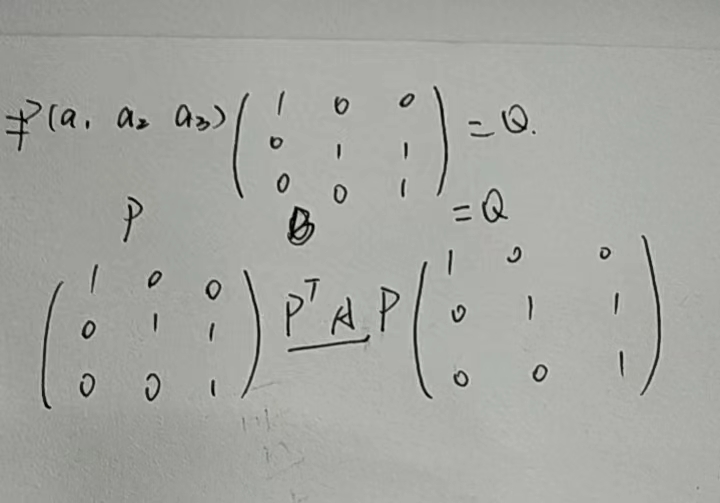 P(a₁ a₂ a₃) ( 1 0 0
0 1 1
0 0 1 ) = Q.
P B = Q
( 1 0 0
0 1 1
0 0 1 ) PᵀAP ( 1 0 0
0 1 1
0 0 1 )